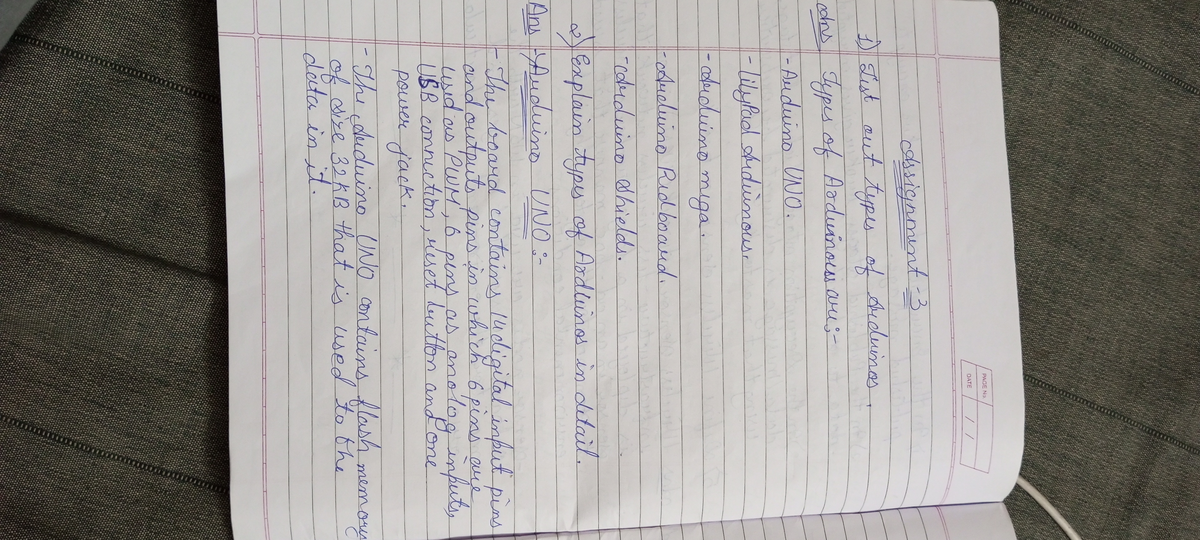 PAGE No.
DATE / /
Assignment-3
1) List out types of Arduinos.
Ans Types of Arduinous are:-
- Arduino UNO.
- Lilypad Arduinous.
- Arduino mega.
- Arduino Redboard.
- Arduino Shields.
2) Explain types of Arduinos in detail.
Ans Arduino UNO:-
- The board contains 14 digital input pins
and outputs pins in which 6 pins are
used as PWM, 6 pins as anolog inputs,
USB connection, reset button and one
power jack.
- The Arduino UNO contains flash memory
of size 32KB that is used to the
data in it.